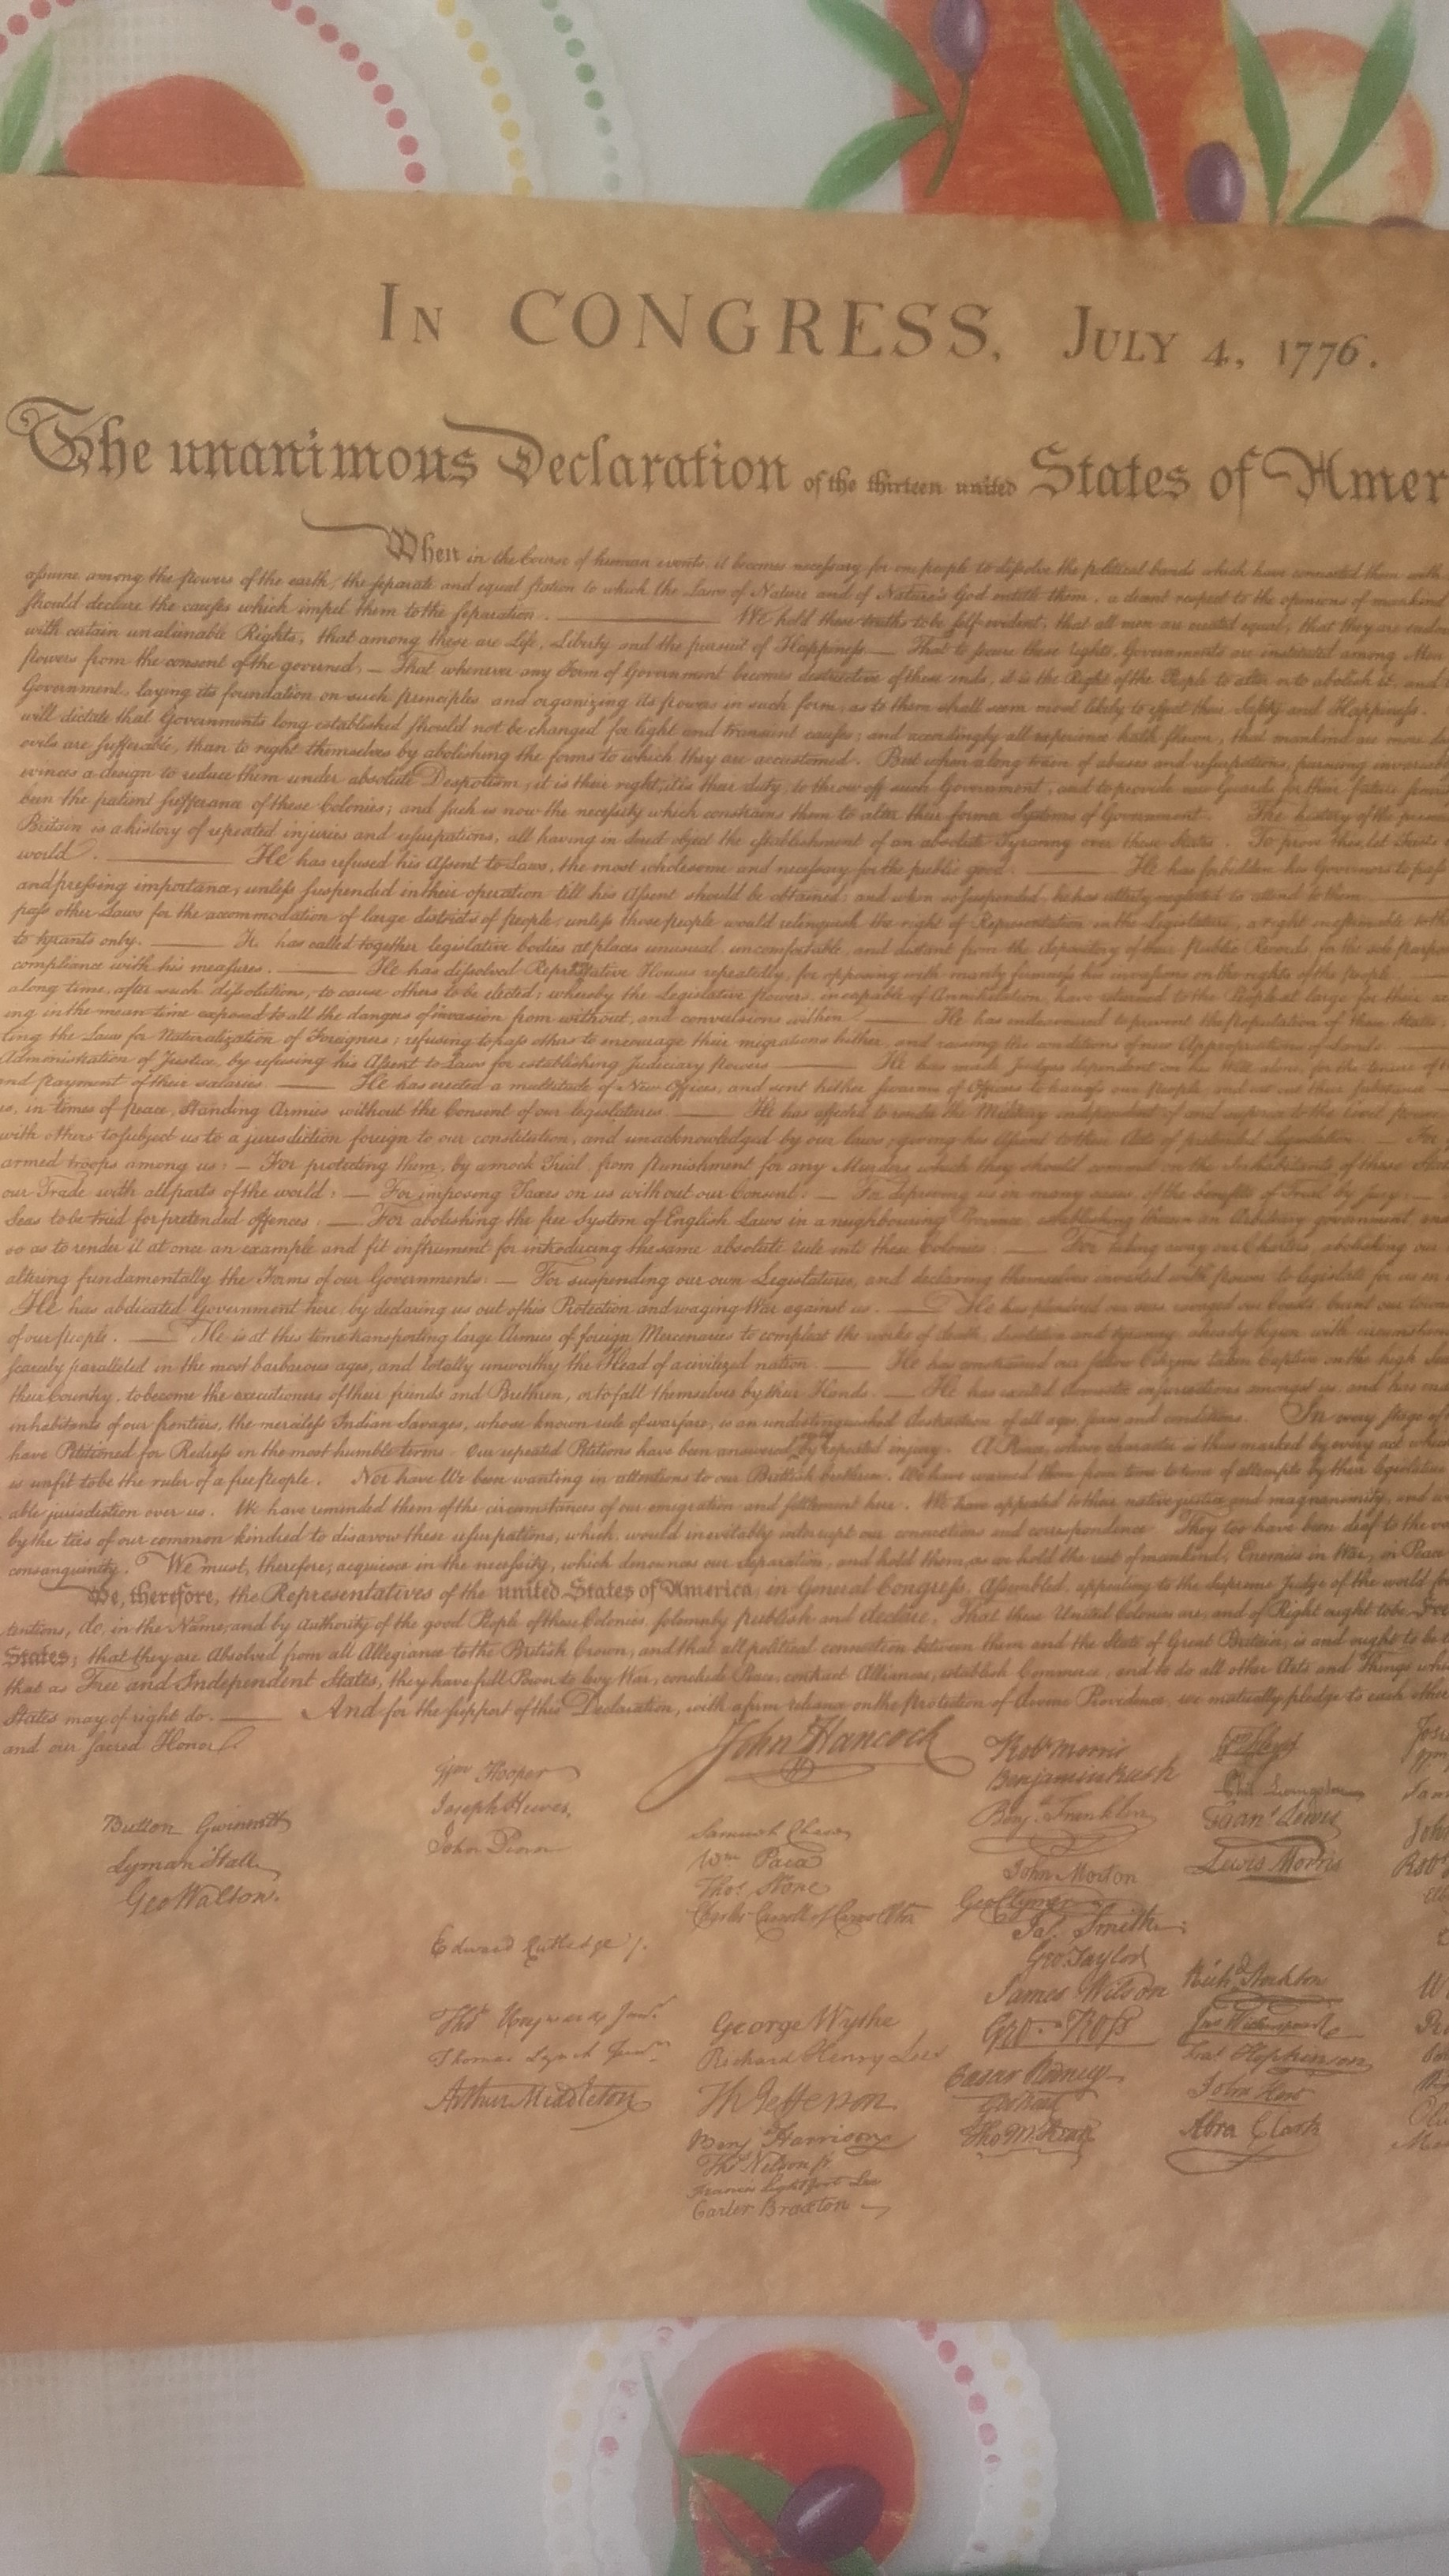 IN CONGRESS, JULY 4, 1776.
The unanimous Declaration of the thirteen united States of Amer
When in the Course of human events, it becomes necessary for one people to dissolve the political bands which have connected them with
assume among the powers of the earth, the separate and equal station to which the Laws of Nature and of Nature's God entitle them, a decent respect to the opinions of mankind
should declare the causes which impel them to the separation. ——— We hold these truths to be self-evident, that all men are created equal, that they are endow
with certain unalienable Rights, that among these are Life, Liberty and the pursuit of Happiness — That to secure these rights, Governments are instituted among Men
powers from the consent of the governed, — That whenever any Form of Government becomes destructive of these ends, it is the Right of the People to alter or to abolish it, and
Government, laying its foundation on such principles and organizing its powers in such form, as to them shall seem most likely to effect their Safety and Happiness.
will dictate that Governments long established should not be changed for light and transient causes; and accordingly all experience hath shewn, that mankind are more
evils are sufferable, than to right themselves by abolishing the forms to which they are accustomed. But when a long train of abuses and usurpations, pursuing invariab
evinces a design to reduce them under absolute Despotism, it is their right, it is their duty, to throw off such Government, and to provide new Guards for their future
been the patient sufferance of these Colonies; and such is now the necessity which constrains them to alter their former Systems of Government. The history of the
Britain is a history of repeated injuries and usurpations, all having in direct object the establishment of an absolute Tyranny over these States. To prove this, let Facts
world. ——— He has refused his Assent to Laws, the most wholesome and necessary for the public good. ——— He has forbidden his Governors to pass
and pressing importance, unless suspended in their operation till his Assent should be obtained; and when so suspended, he has utterly neglected to attend to them. ———
pass other Laws for the accommodation of large districts of people, unless those people would relinquish the right of Representation in the Legislature, a right inestimable to
to tyrants only. ——— He has called together legislative bodies at places unusual, uncomfortable, and distant from the depository of their Public Records, for the sole purpo
compliance with his measures. ——— He has dissolved Representative Houses repeatedly, for opposing with manly firmness his invasions on the rights of the people. ———
a long time, after such dissolutions, to cause others to be elected; whereby the Legislative powers, incapable of Annihilation, have returned to the People at large for their
ing in the mean time exposed to all the dangers of invasion from without, and convulsions within. ——— He has endeavoured to prevent the population of these States
ing the Laws for Naturalization of Foreigners; refusing to pass others to encourage their migrations hither, and raising the conditions of new Appropriations of Lands. ———
Administration of Justice, by refusing his Assent to Laws for establishing Judiciary powers. ——— He has made Judges dependent on his Will alone, for the tenure of
nd payment of their salaries. ——— He has erected a multitude of New Offices, and sent hither swarms of Officers to harrass our People, and eat out their substance. ———
us, in times of peace, Standing Armies without the Consent of our legislatures. ——— He has affected to render the Military independent of and superior to the Civil power.
with others to subject us to a jurisdiction foreign to our constitution, and unacknowledged by our laws; giving his Assent to their Acts of pretended Legislation: — For
armed troops among us: — For protecting them, by a mock Trial, from punishment for any Murders which they should commit on the Inhabitants of these
our Trade with all parts of the world: — For imposing Taxes on us without our Consent: — For depriving us in many cases, of the benefits of Trial by Jury: —
Seas to be tried for pretended offences: — For abolishing the free System of English Laws in a neighbouring Province, establishing therein an Arbitrary government, and
so as to render it at once an example and fit instrument for introducing the same absolute rule into these Colonies: — For taking away our Charters, abolishing our
altering fundamentally the Forms of our Governments: — For suspending our own Legislatures, and declaring themselves invested with power to legislate for us in
He has abdicated Government here, by declaring us out of his Protection and waging War against us. — He has plundered our seas, ravaged our Coasts, burnt our towns
of our people. — He is at this time transporting large Armies of foreign Mercenaries to compleat the works of death, desolation and tyranny, already begun with circumstan
scarcely paralleled in the most barbarous ages, and totally unworthy the Head of a civilized nation. — He has constrained our fellow Citizens taken Captive on the high Se
their Country, to become the executioners of their friends and Brethren, or to fall themselves by their Hands. — He has excited domestic insurrections amongst us, and has en
inhabitants of our frontiers, the merciless Indian Savages, whose known rule of warfare, is an undistinguished destruction of all ages, sexes and conditions. In every stage of
have Petitioned for Redress in the most humble terms: Our repeated Petitions have been answered only by repeated injury. A Prince, whose character is thus marked by every act which
is unfit to be the ruler of a free people. Nor have We been wanting in attentions to our Brittish brethren. We have warned them from time to time of attempts by their legislature
able jurisdiction over us. We have reminded them of the circumstances of our emigration and settlement here. We have appealed to their native justice and magnanimity, and
by the ties of our common kindred to disavow these usurpations, which, would inevitably interrupt our connections and correspondence. They too have been deaf to the
consanguinity. We must, therefore, acquiesce in the necessity, which denounces our Separation, and hold them, as we hold the rest of mankind, Enemies in War, in Peace
We, therefore, the Representatives of the united States of America, in General Congress, Assembled, appealing to the Supreme Judge of the world for
tentions, do, in the Name, and by Authority of the good People of these Colonies, solemnly publish and declare, That these United Colonies are, and of Right ought to be Free
States; that they are Absolved from all Allegiance to the British Crown, and that all political connection between them and the State of Great Britain, is and ought to be
that as Free and Independent States, they have full Power to levy War, conclude Peace, contract Alliances, establish Commerce, and to do all other Acts and Things whi
States may of right do. ——— And for the support of this Declaration, with a firm reliance on the protection of divine Providence, we mutually pledge to each other
and our sacred Honor.
John Hancock
Button Gwinnett
Lyman Hall
Geo Walton.
Wm Hooper
Joseph Hewes,
John Penn
Edward Rutledge /.
Thos Heyward Junr.
Thomas Lynch Junr.
Arthur Middleton
Samuel Chase
Wm. Paca
Thos. Stone
Charles Carroll of Carrollton
George Wythe
Richard Henry Lee
Th Jefferson
Benj Harrison
Thos Nelson jr.
Francis Lightfoot Lee
Carter Braxton
Robt Morris
Benjamin Rush
Benj. Franklin
John Morton
Geo Clymer
Jas. Smith
Geo. Taylor
James Wilson
Geo. Ross
Caesar Rodney
Geo Read
Tho M:Kean
Phil. Livingston
Frans. Lewis
Lewis Morris
Richd. Stockton
Jno Witherspoon
Fras. Hopkinson
John Hart
Abra Clark